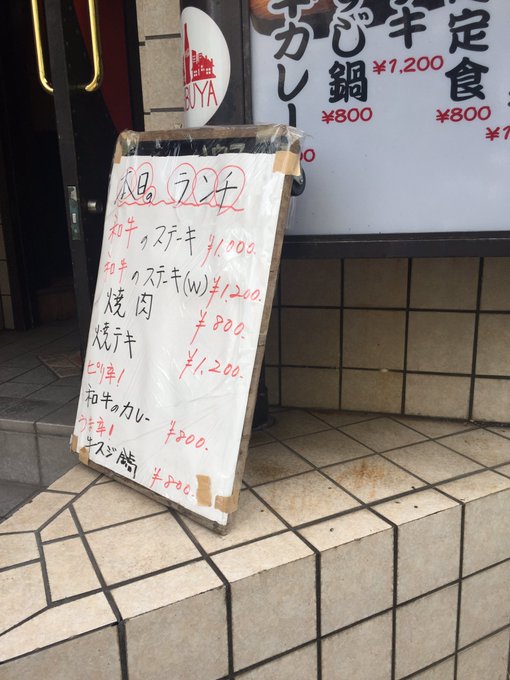 本日のランチ
和牛のステーキ ¥1,000.
和牛のステーキ(W) ¥1,200.
焼肉 ¥800.
焼テキ ¥1,200.
ピリ辛!
和牛のカレー ¥800.
うま辛!
牛スジ鍋 ¥800.
BUYA
牛カレー
すじ鍋
¥800
キ
¥1,200
定食
¥800